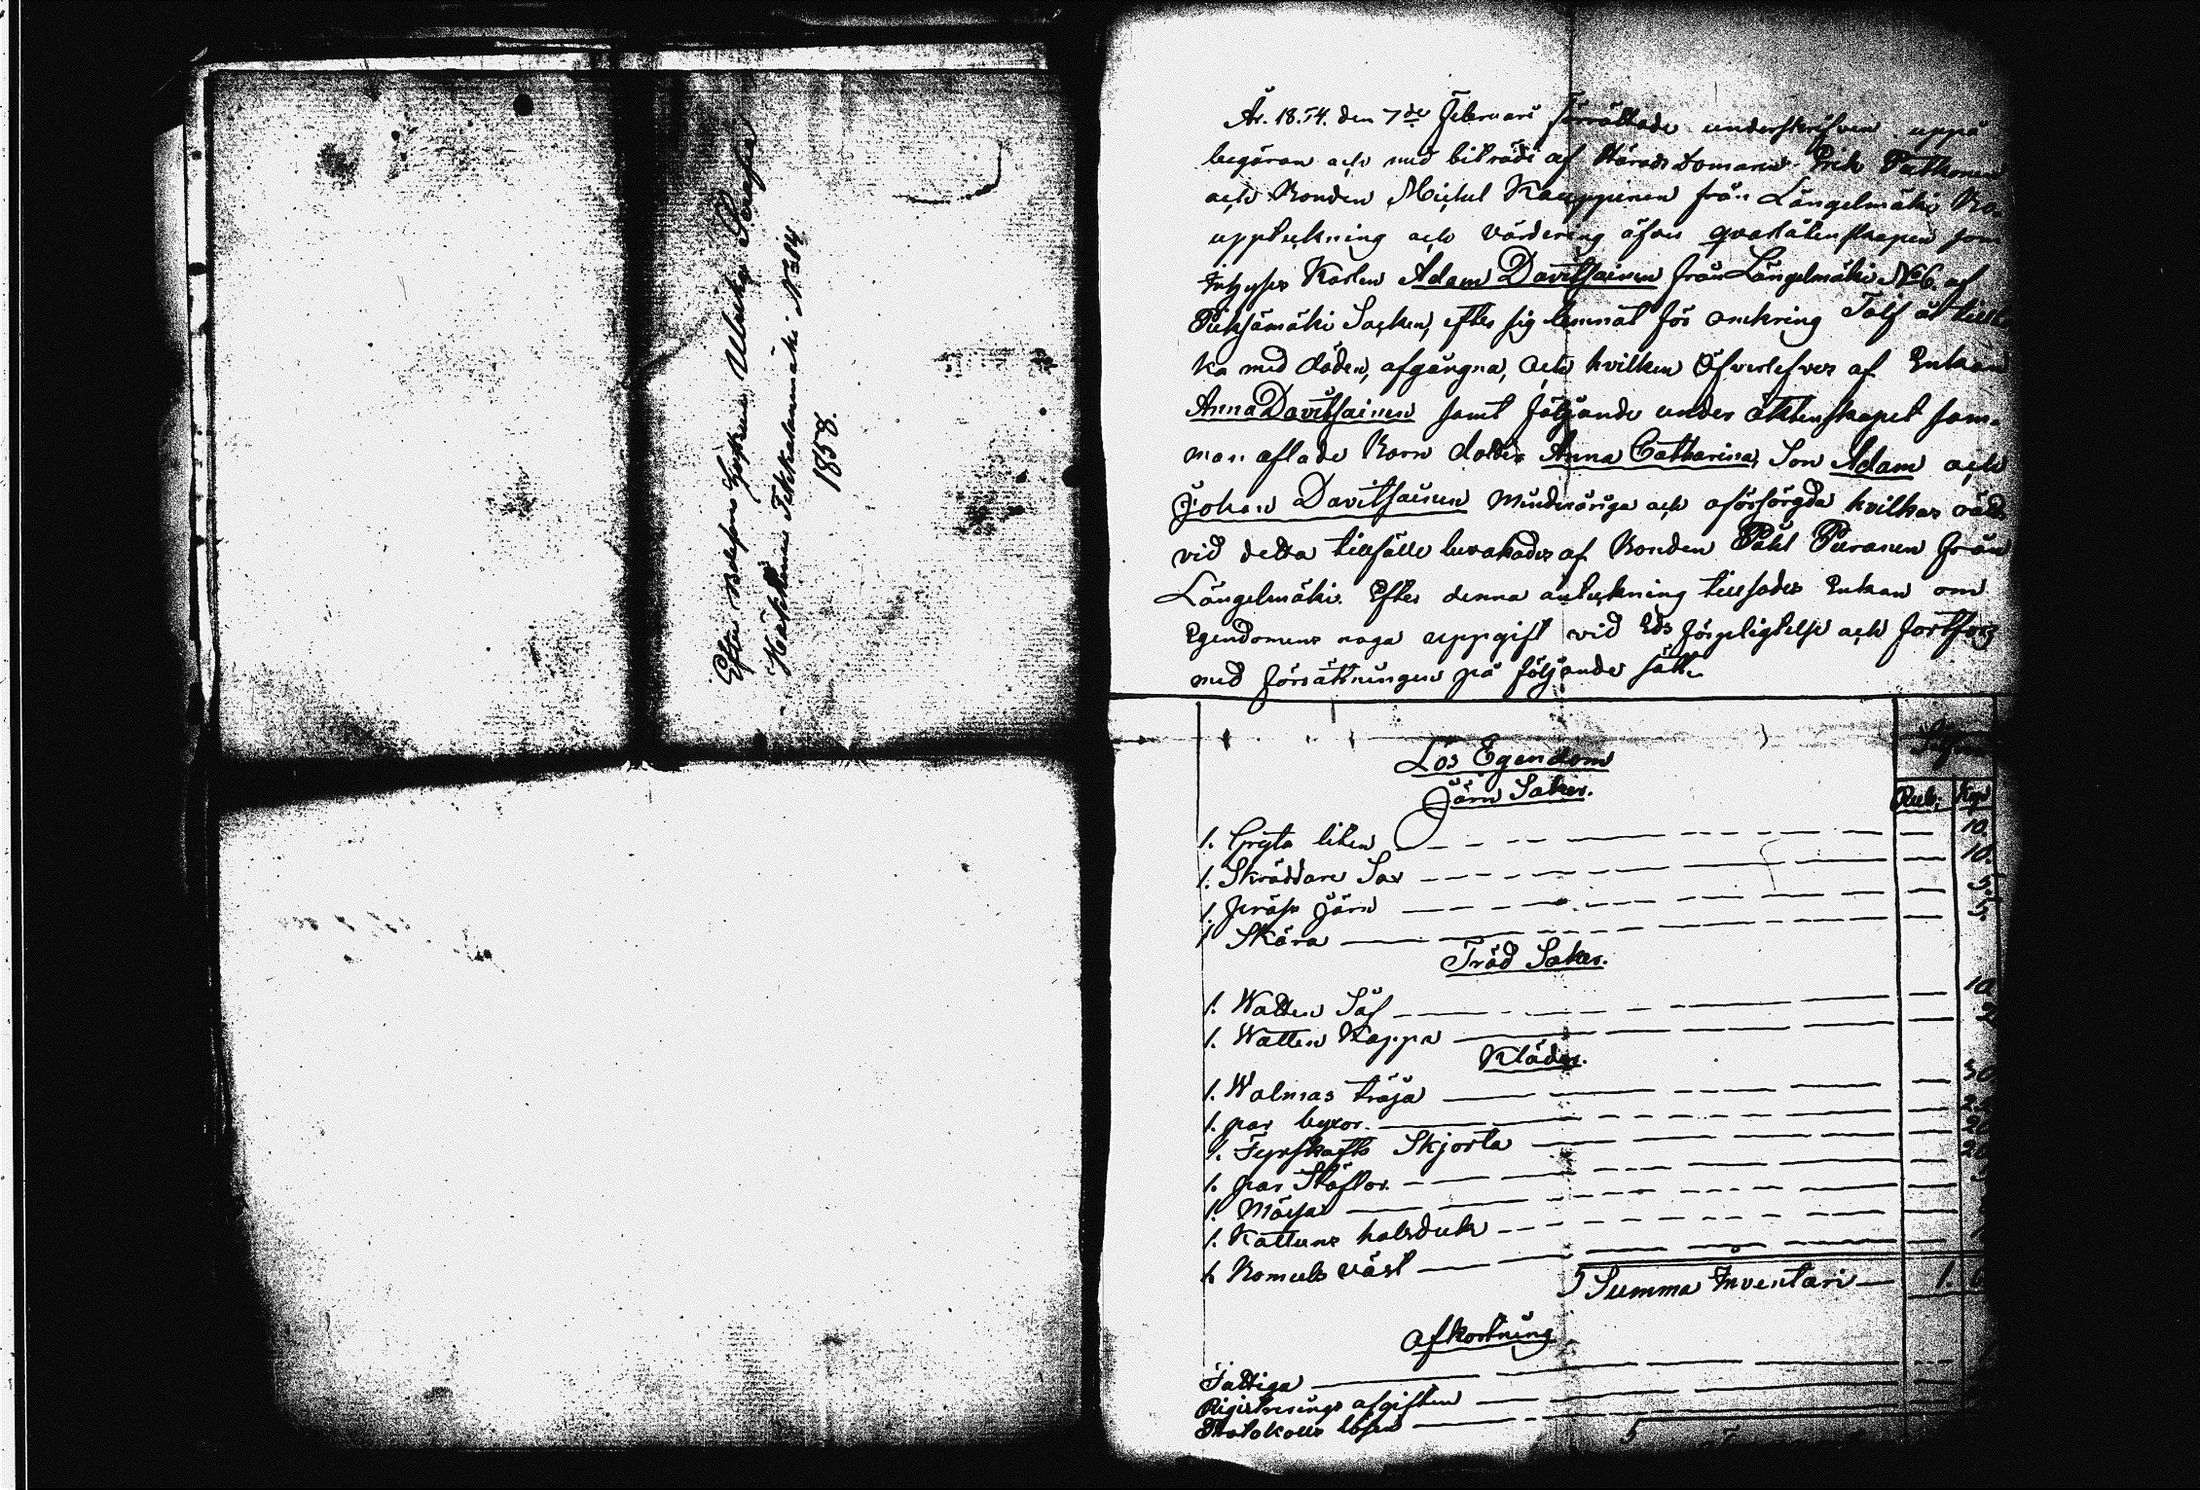 Efter Bolefons hustrun Ulrika Serafia
Häkkinen Tikkalanmäki N:o 14
1858.
År. 1854. den 7de Februari förrättade underskrifven uppå
begäran och med biträde af Härads domaren Erik Putkonen
och Bonden Michel Kauppinen från Längelmäki Bo
uppteckning och värdering öfver qvarlåtenskapen som
Inhyses Karlen Adam Davitsainen från Längelmäki N:o 6. af
Pieksämäki Socken, efter sig lemnat för omkring Tolf år tillb
ka med döden, afgångna, och hvilken öfverlefves af Enkan
Anna Davitsainen samt följande under äktenskapet sam-
man aflade Barn dotter Anna Catharina, Son Adam och
Johan Davitsainen Minderåriga och oförsörgda hvilkas rätt
vid detta tillfälle bevakades af Bonden Påhl Puranen från
Längelmäki. Efter denna anteckning tillsades Enkan om
Egendomens noga uppgift vid Eds förpligtelse och fortfors
med förrättningen på följande sätt.
Lös Egendom
Järn Saker. Rub. Kop
1. Gryta liten 10.
1. Skräddare Sax 10.
1. Präss järn 5.
1 Skära 5.
Träd Saker.
1. Watten Så 10
1. Watten Kappa 2
Kläder.
1. Walmas tröja 50
1. par byxor.
1. Fyrskafts Skjorta
1. par Stöflor. 20
1. Mössa
1. Kattuns halsduk
1. Bomuls väst
Summa Inventari 1.
Afkortning
Fattiga
Registrerings afgiften
Protokolls lösen